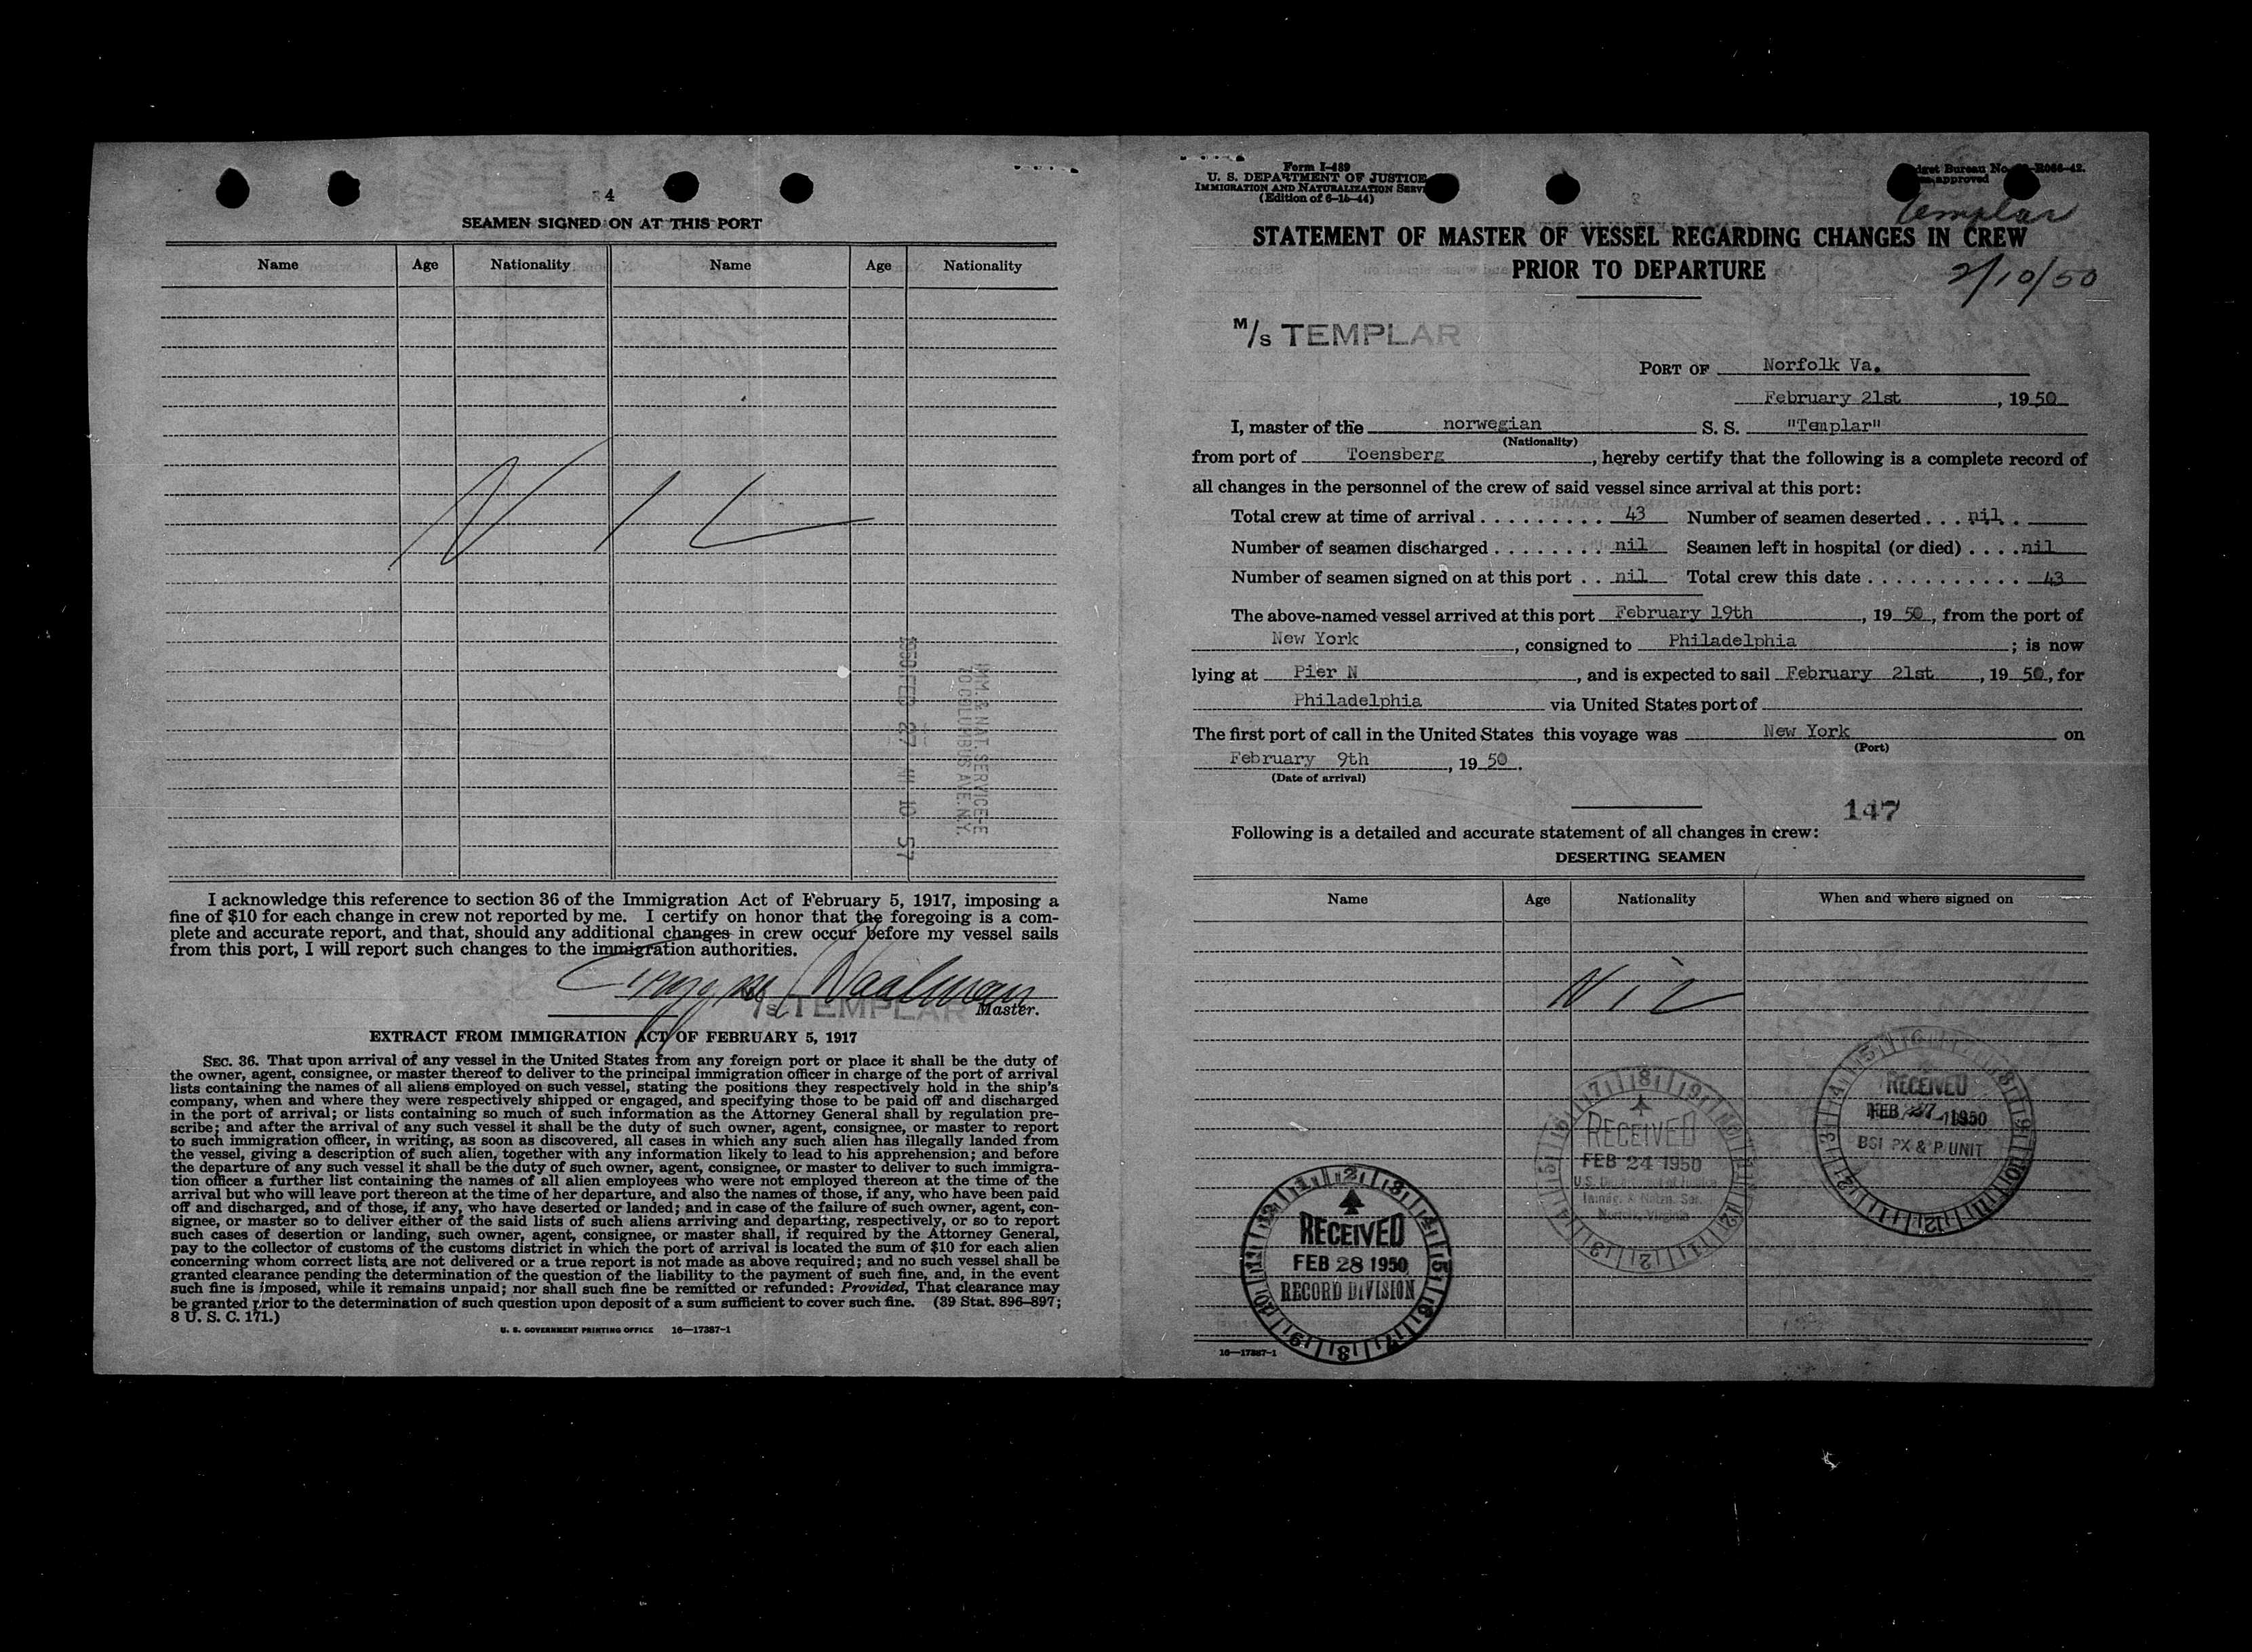 4
SEAMEN SIGNED ON AT THIS PORT
Name Age Nationality Name Age Nationality
NIL
1950 FEB 27 AM 10 57
IMM. & NAT. SERVICE-E
70 COLUMBUS AVE. N.Y.
I acknowledge this reference to section 36 of the Immigration Act of February 5, 1917, imposing a
fine of $10 for each change in crew not reported by me. I certify on honor that the foregoing is a com-
plete and accurate report, and that, should any additional changes in crew occur before my vessel sails
from this port, I will report such changes to the immigration authorities.
M/s TEMPLAR Master.
EXTRACT FROM IMMIGRATION ACT OF FEBRUARY 5, 1917
SEC. 36. That upon arrival of any vessel in the United States from any foreign port or place it shall be the duty of
the owner, agent, consignee, or master thereof to deliver to the principal immigration officer in charge of the port of arrival
lists containing the names of all aliens employed on such vessel, stating the positions they respectively hold in the ship's
company, when and where they were respectively shipped or engaged, and specifying those to be paid off and discharged
in the port of arrival; or lists containing so much of such information as the Attorney General shall by regulation pre-
scribe; and after the arrival of any such vessel it shall be the duty of such owner, agent, consignee, or master to report
to such immigration officer, in writing, as soon as discovered, all cases in which any such alien has illegally landed from
the vessel, giving a description of such alien, together with any information likely to lead to his apprehension; and before
the departure of any such vessel it shall be the duty of such owner, agent, consignee, or master to deliver to such immigra-
tion officer a further list containing the names of all alien employees who were not employed thereon at the time of the
arrival but who will leave port thereon at the time of her departure, and also the names of those, if any, who have been paid
off and discharged, and of those, if any, who have deserted or landed; and in case of the failure of such owner, agent, con-
signee, or master so to deliver either of the said lists of such aliens arriving and departing, respectively, or so to report
such cases of desertion or landing, such owner, agent, consignee, or master shall, if required by the Attorney General,
pay to the collector of customs of the customs district in which the port of arrival is located the sum of $10 for each alien
concerning whom correct lists are not delivered or a true report is not made as above required; and no such vessel shall be
granted clearance pending the determination of the question of the liability to the payment of such fine, and, in the event
such fine is imposed, while it remains unpaid; nor shall such fine be remitted or refunded: Provided, That clearance may
be granted prior to the determination of such question upon deposit of a sum sufficient to cover such fine. (39 Stat. 896–897;
8 U. S. C. 171.)
U. S. GOVERNMENT PRINTING OFFICE 16—17387-1
Form I-489
U. S. DEPARTMENT OF JUSTICE
IMMIGRATION AND NATURALIZATION SERVI
(Edition of 6-15-44)
Bureau No. R066-42.
approved
Templar
STATEMENT OF MASTER OF VESSEL REGARDING CHANGES IN CREW
PRIOR TO DEPARTURE
2/10/50
M/s TEMPLAR
PORT OF Norfolk Va.
February 21st, 1950
I, master of the norwegian S. S. "Templar"
(Nationality)
from port of Toensberg, hereby certify that the following is a complete record of
all changes in the personnel of the crew of said vessel since arrival at this port:
Total crew at time of arrival . . . . . . . . . 43 Number of seamen deserted . . . nil
Number of seamen discharged . . . . . . . . nil Seamen left in hospital (or died) . . . . nil
Number of seamen signed on at this port . . nil Total crew this date . . . . . . . . . . . . 43
The above-named vessel arrived at this port February 19th, 1950, from the port of
New York, consigned to Philadelphia; is now
lying at Pier N, and is expected to sail February 21st, 1950, for
Philadelphia via United States port of
The first port of call in the United States this voyage was New York on
(Port)
February 9th, 1950.
(Date of arrival)
147
Following is a detailed and accurate statement of all changes in crew:
DESERTING SEAMEN
Name Age Nationality When and where signed on
Nil
RECEIVED
FEB 27 1950
BSI PX & P UNIT
RECEIVED
FEB 24 1950
U.S. Department of Justice
Immig. & Natzn. Ser.
Norfolk, Virginia
RECEIVED
FEB 28 1950
RECORD DIVISION
16—17387-1